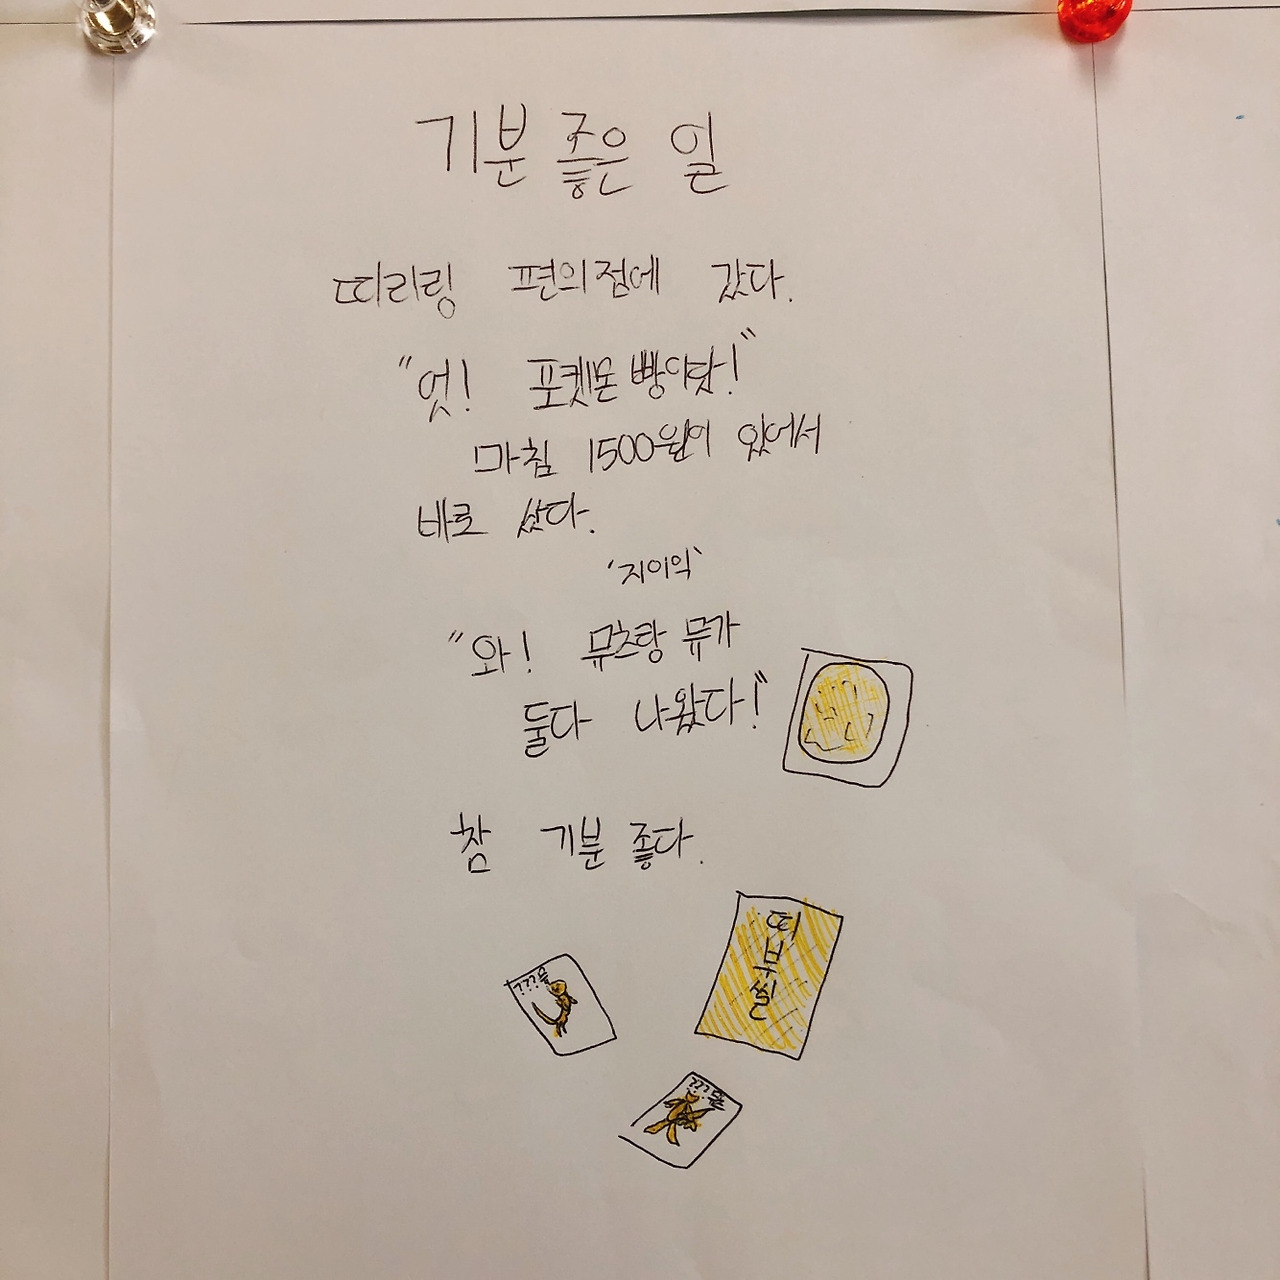 기분 좋은 일
띠리링 편의점에 갔다.
"엇! 포켓몬 빵이닷!"
마침 1500원이 있어서
바로 샀다.
'지이익'
"와! 뮤츠랑 뮤가
둘다 나왔다!"
참 기분 좋다.
띠부씰
뮤???